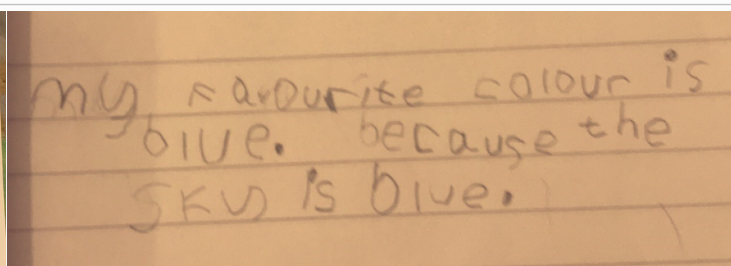 my favourite colour is
blue. because the
sky is blue.